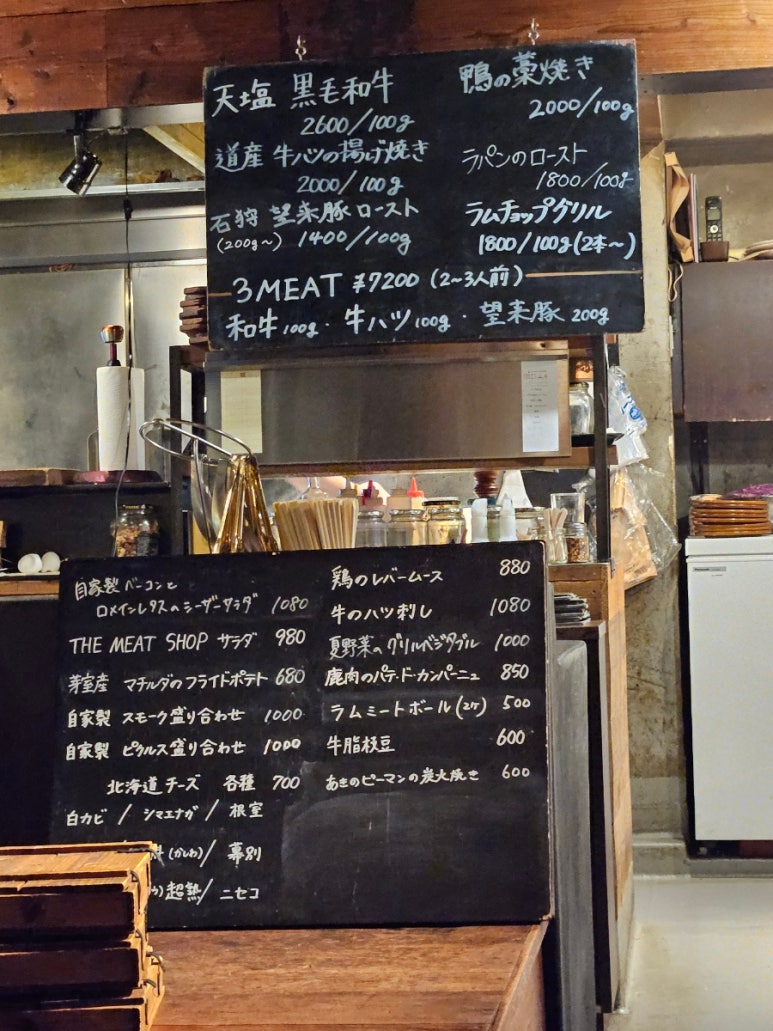 天塩 黒毛和牛
2600/100g
道産 牛ハツの揚げ焼き
2000/100g
石狩 望来豚 ロースト
(200g~) 1400/100g
鴨の藁焼き
2000/100g
ラパンのロースト
1800/100g
ラムチョップグリル
1800/100g(2本~)
3MEAT ¥7200 (2~3人前)
和牛100g・牛ハツ100g・望来豚200g
自家製 ベーコンと
ロメインレタスのシーザーサラダ 1080
THE MEAT SHOP サラダ 980
芽室産 マチルダのフライドポテト 680
自家製 スモーク盛り合わせ 1000
自家製 ピクルス盛り合わせ 1000
北海道チーズ 各種 700
白カビ / シマエナガ / 根室
(かしわ) / 幕別
超熟 / ニセコ
鶏のレバームース 880
牛のハツ刺し 1080
夏野菜のグリルベジタブル 1000
鹿肉のパテ・ド・カンパーニュ 850
ラムミートボール(2ケ) 500
牛脂枝豆 600
あきのピーマンの炭火焼き 600